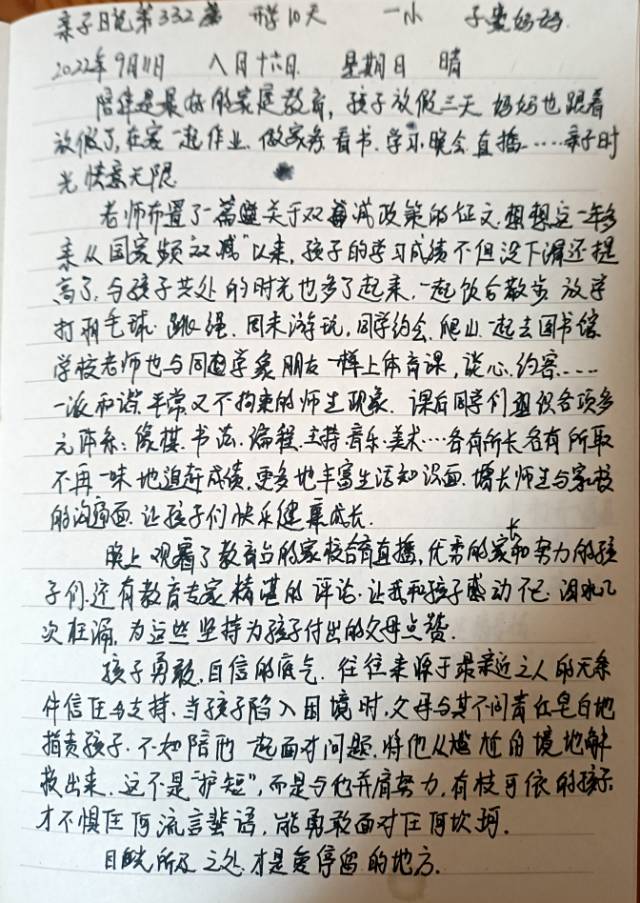 亲子日记第332篇 开学10天 一小 子雯妈妈
2022年9月11日 八月十六日 星期日 晴
陪伴是最好的家庭教育，孩子放假三天 妈妈也跟着
放假了，在家一起作业、做家务、看书、学习、晚会、直播……亲子时
光惬意无限
老师布置了一篇关于双减政策的征文，想想这一年多
来从国家颁"双减"以来，孩子的学习成绩不但没下滑还提
高了，与孩子共处的时光也多了起来，一起饭后散步 放学
打羽毛球、跳绳、周末游玩，同学约会、爬山、一起去图书馆
学校老师也与同学象朋友一样上体育课，谈心、约客……
一派和谐平常又不拘束的师生现象．课后同学们组织各项多
元体系：象棋、书法、编程、主持、音乐、美术……各有所长各有所取
不再一味地追赶成绩，更多地丰富生活知识面，增长师生与家校
的沟通面，让孩子们快乐健康成长．
晚上观看了教育与的家校合育直播，优秀的家长和努力的孩
子们，还有教育专家精湛的评论．让我和孩子感动不已 泪水几
次狂涌，为这些坚持为孩子付出的父母点赞．
孩子勇敢，自信的底气．往往来源于最亲近之人的无条
件信任与支持．当孩子陷入困境时，父母与其不问青红皂白地
指责孩子．不如陪他一起面对问题，将他从尴尬的境地解
救出来．这不是"护短"，而是与他并肩努力，有枝可依的孩子，
才不惧任何流言蜚语，能勇敢面对任何坎坷．
目光所及之处，才是爱停留的地方．